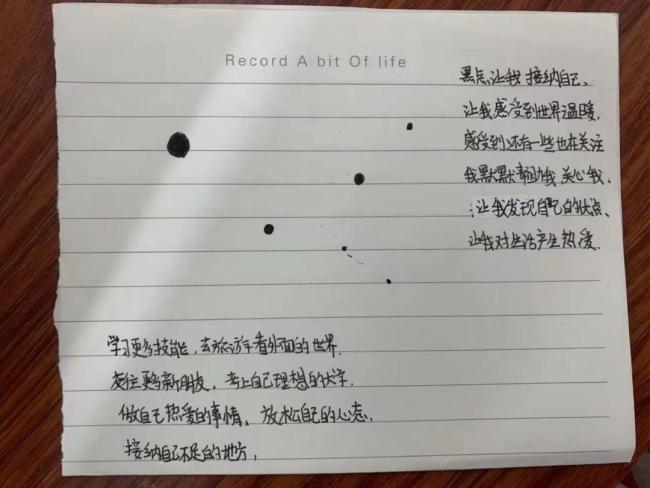 Record A bit Of life
黑点让我接纳自己、
让我感受到世界温暖,
感受到还有一些也在关注
我默默帮助我关心我、
让我发现自己的优点、
让我对生活产生热爱.
学习更多技能,去旅游看外面的世界.
交往更多新朋友,考上自己理想的大学.
做自己热爱的事情、放松自己的心态.
接纳自己不足的地方,